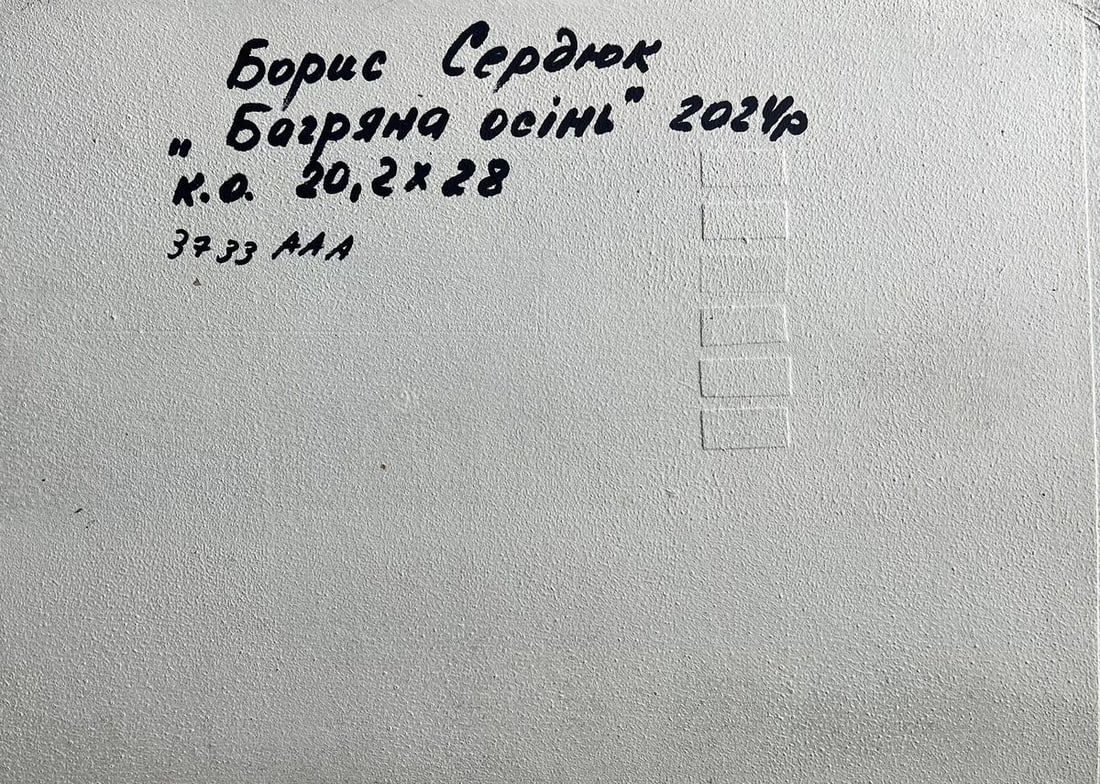 Борис Сердюк
„Багряна осінь" 2024р
к.о. 20,2х28
3733 ААА